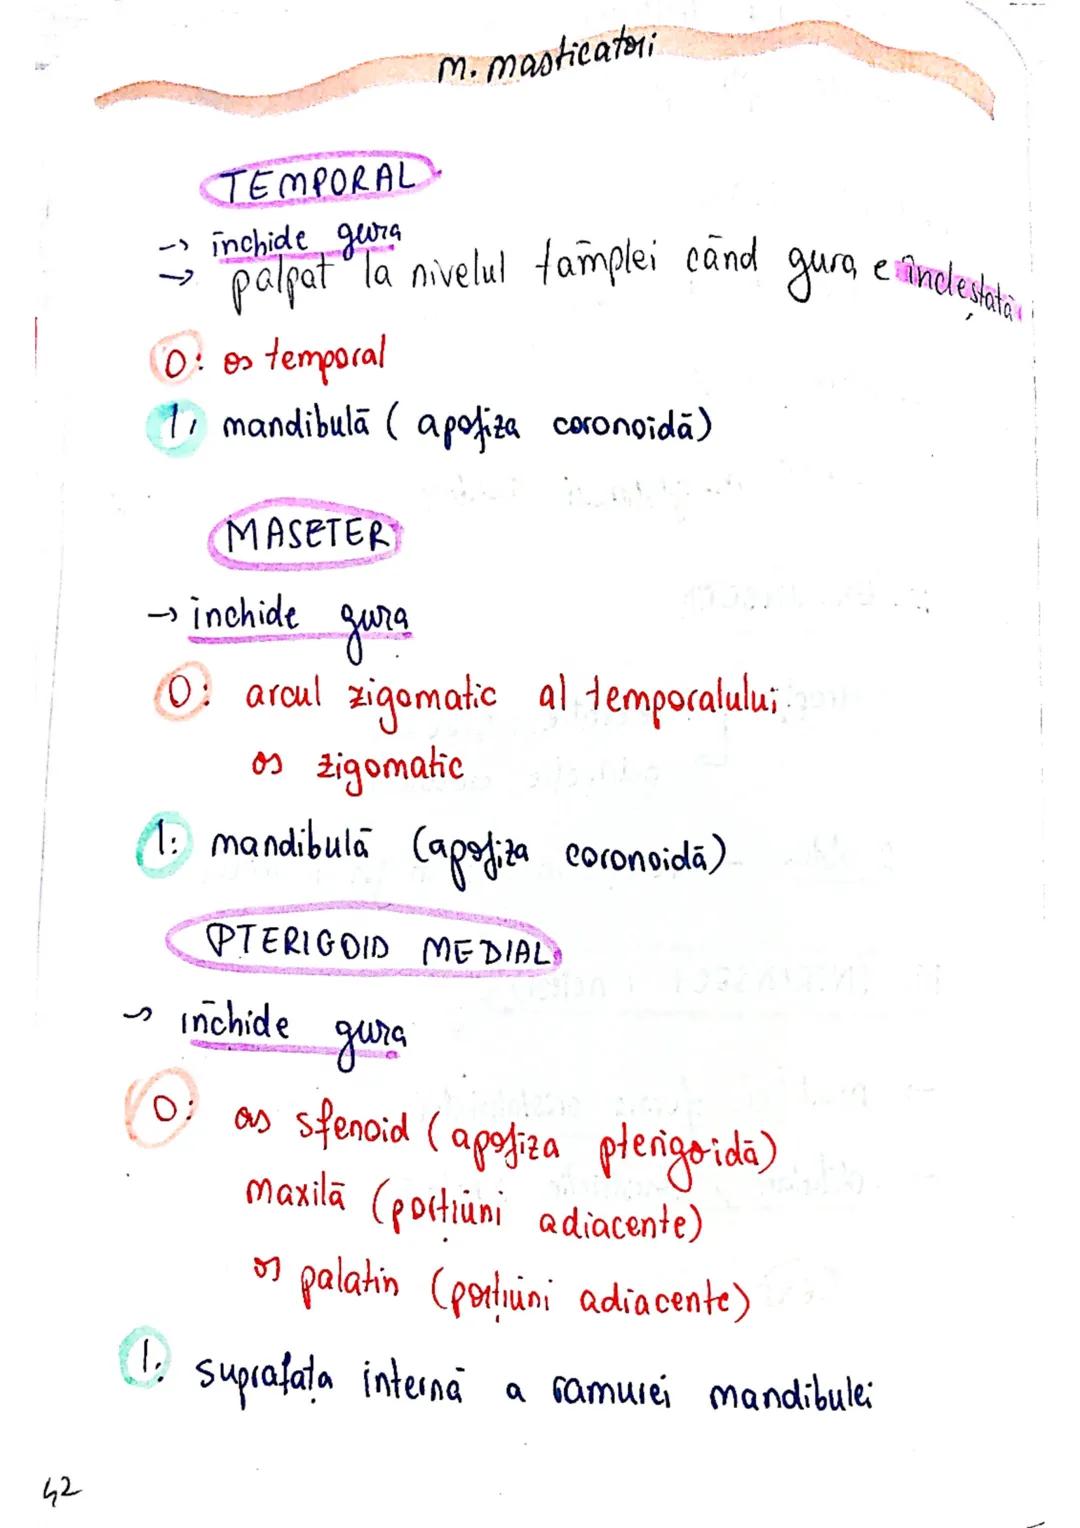 m. masticatori
TEMPORAL
→ închide gura
→ palpat la nivelul tâmplei când gura e încleștată
O: os temporal
I: mandibulă (apofiza coronoidă)
MASETER
→ închide gura
O: arcul zigomatic al temporalului
os zigomatic
I: mandibulă (apofiza coronoidă)
PTERIGOID MEDIAL
→ închide gura
O: os sfenoid (apofiza pterigoidă)
maxilă (porțiuni adiacente)
os palatin (porțiuni adiacente)
I: suprafața internă a ramurei mandibulei
42